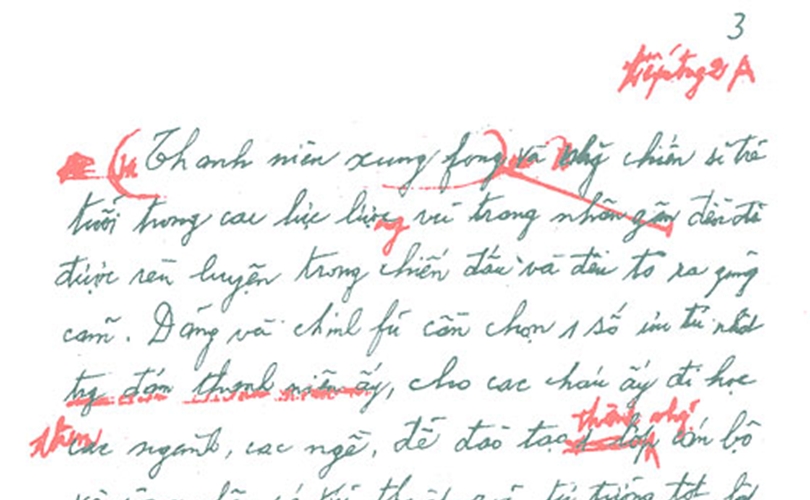 3
tiếp tng 2 A
Thanh niên xung fong và nhữg chiến sĩ trẻ
tuổi trong các lực lượng vũ trang nhân dân đều đã
được rèn luyện trong chiến đấu và đều tỏ ra zũng
cảm. Đảng và chính fủ cần chọn 1 số ưu tú nhất
trg đám thanh niên ấy, cho các cháu ấy đi học
thêm các ngành, các ngề, để đào tạo thành nhữg cán bộ